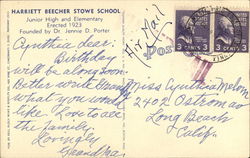 HARRIETT BEECHER STOWE SCHOOL
Junior High and Elementary
Erected 1923
Founded by Dr. Jennie D. Porter
Air Mail
Cynthia dear:
Birthday
will be along soon.
Better write
what you would
like. Love to all
the family.
Lovingly
Grandma.
Miss Cynthia Melom
2402 Ostrom ave
Long Beach
Calif.
3 CENTS 3
3 CENTS 3